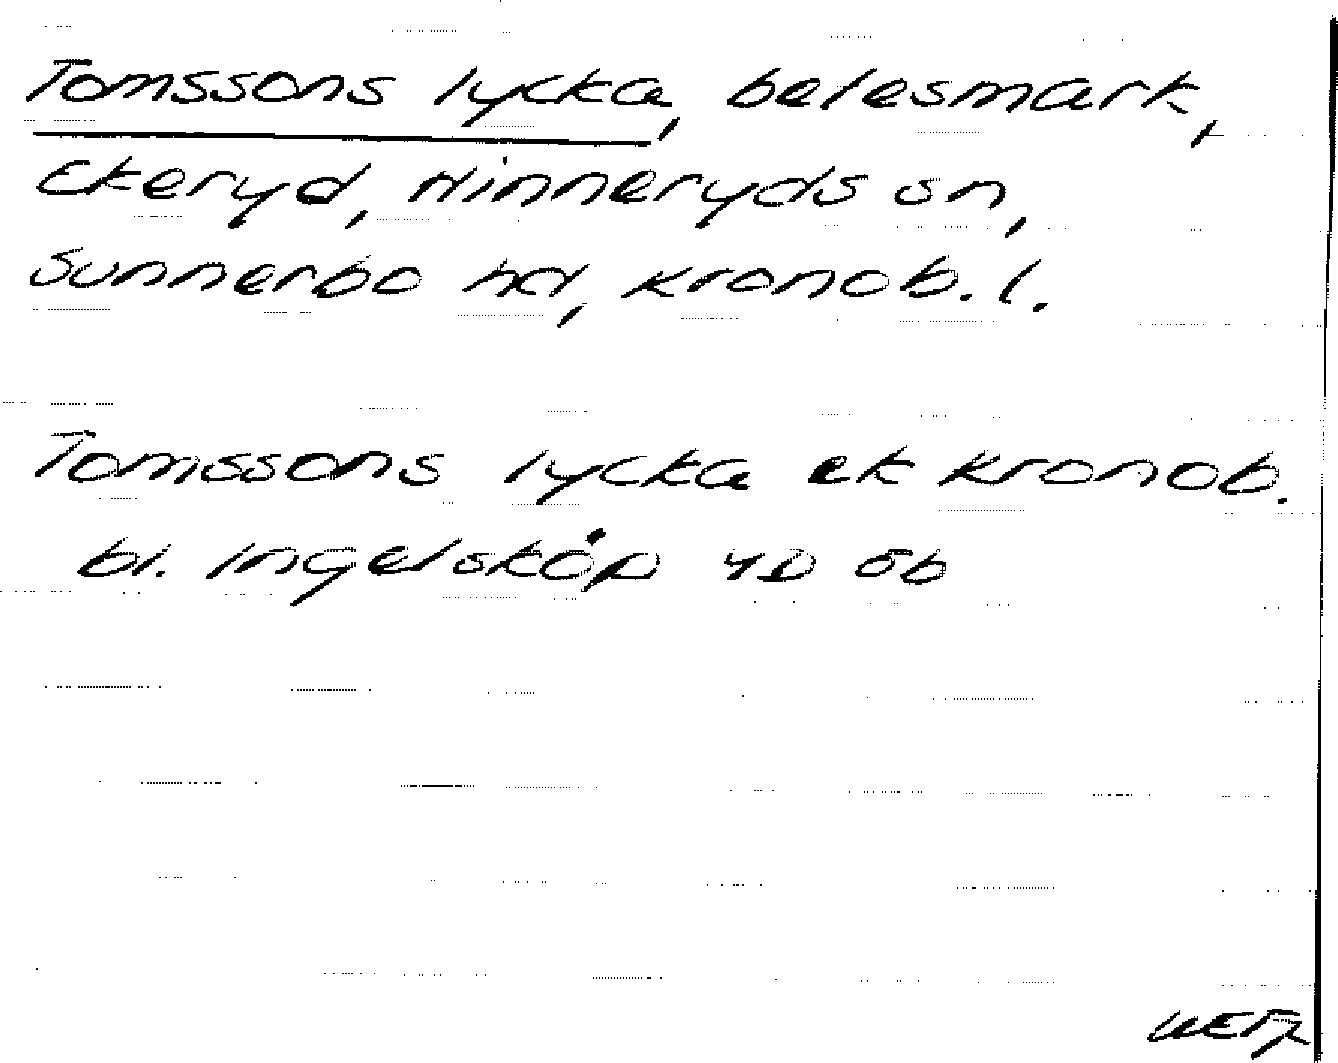 Tomssons lycka, betesmark,
Ekeryd, Hinneryds sn,
Sunnerbo hd, Kronob. l.
Tomssons lycka ek Kronob.
bl. Ingelsköp 4D 5b